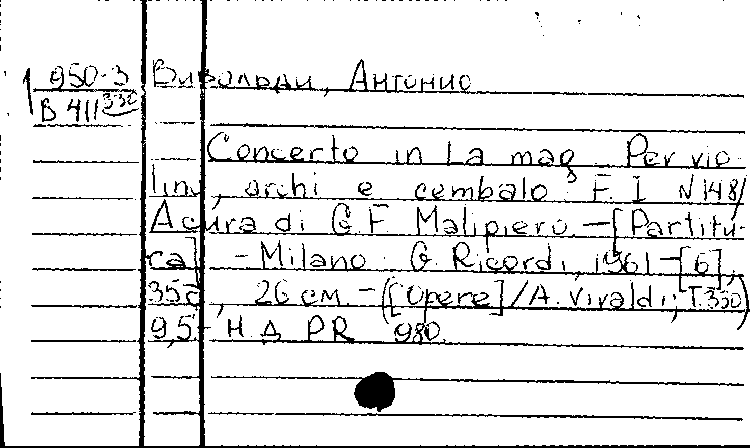 950-3 Вивальди, Антонио
В 411 350
Concerto in La mag. Per vio-
lino, archi e cembalo. F. I N 148/
A cura di G. F. Malipiero. - [Partitu-
ra]. - Milano: G. Ricordi, 1961 - [6],
35с., 26 см. - ([Opere]/A. Vivaldi; T.350)
9,5 Н Д PR 980.